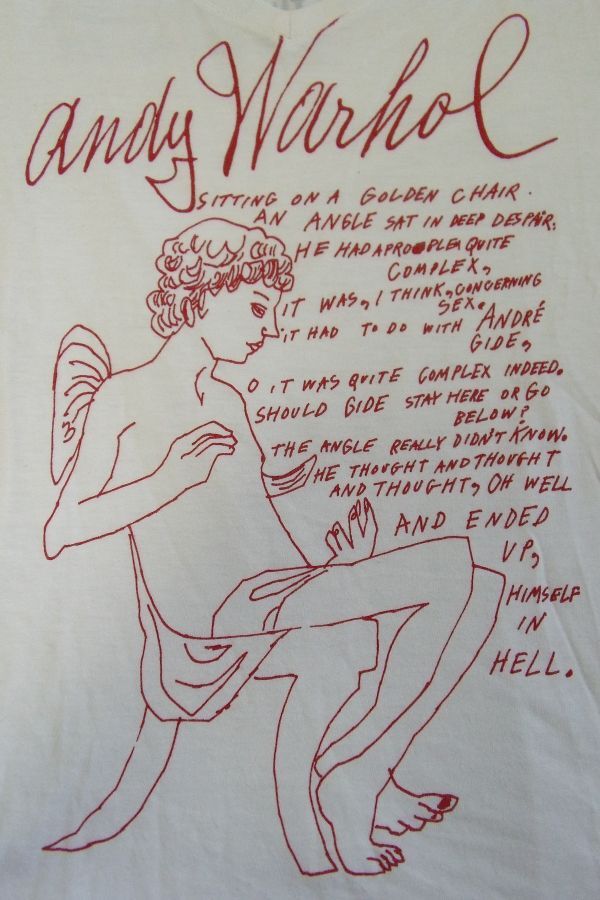 andy Warhol
SITTING ON A GOLDEN CHAIR.
AN ANGLE SAT IN DEEP DESPAIR,
HE HAD A PROOPLEM QUITE
COMPLEX,
IT WAS, I THINK, CONCERNING
SEX.
IT HAD TO DO WITH ANDRÉ
GIDE,
O IT WAS QUITE COMPLEX INDEED.
SHOULD GIDE STAY HERE OR GO
BELOW?
THE ANGLE REALLY DIDN'T KNOW.
HE THOUGHT AND THOUGHT
AND THOUGHT, OH WELL
AND ENDED
UP,
HIMSELF
IN
HELL.